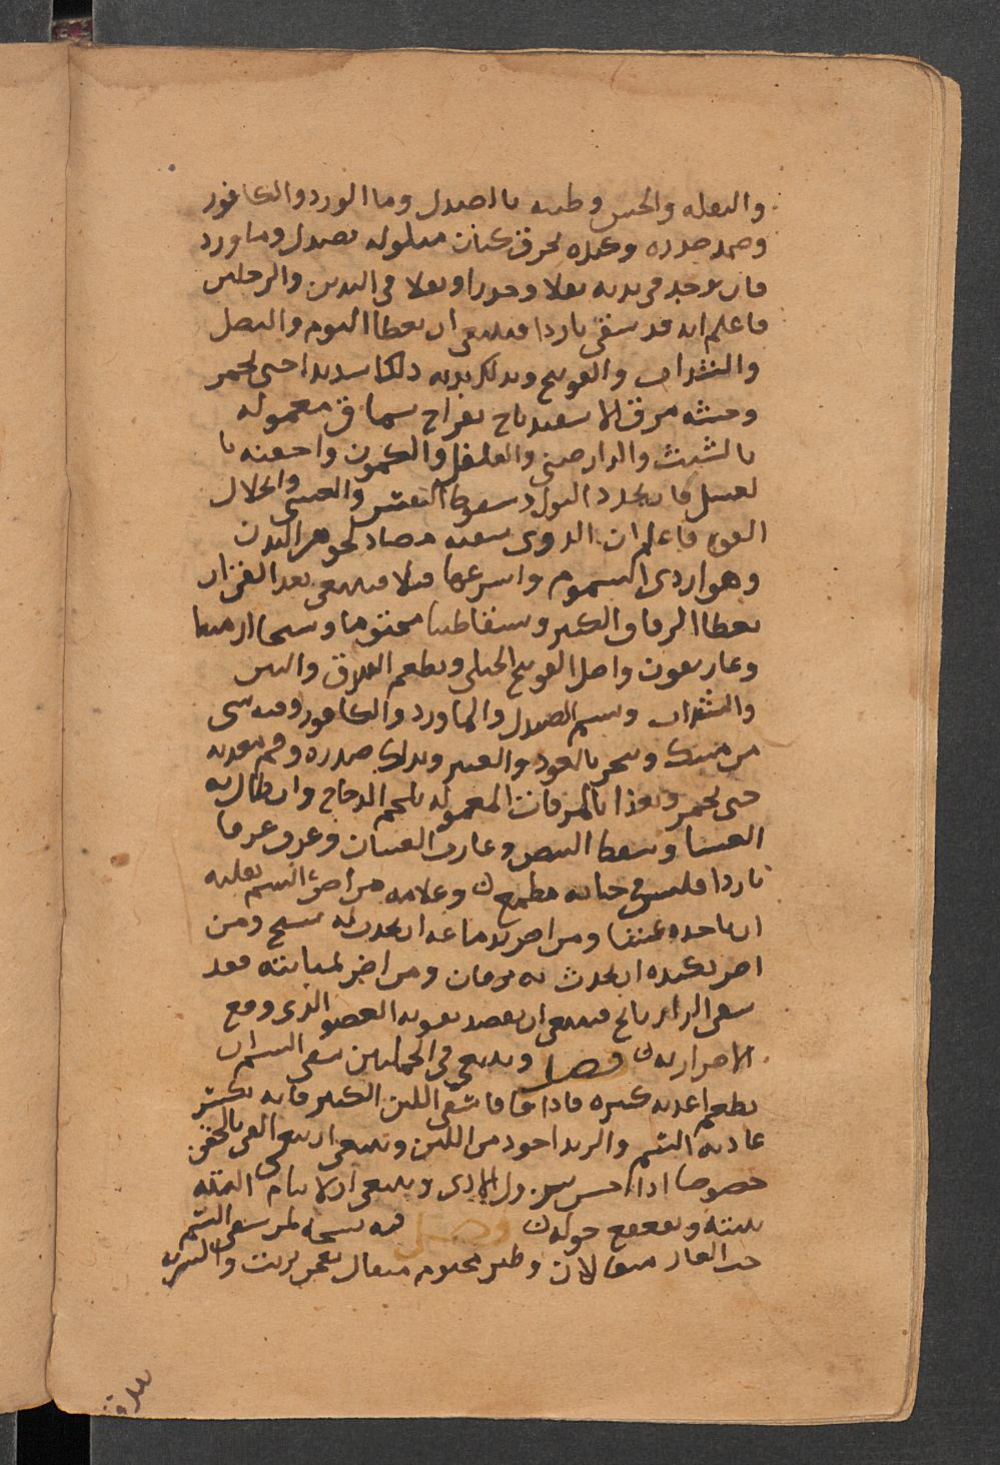 والبقله والخس وطيبه بالصندل وما الورد والكافور
وضمد صدره وكبده بخرق كتان مبلوله بصندل وماورد
فان وجد في بدنه ثقلا وخدرا وثقلا في اليدين والرجلين
فاعلم انه قد سقي باردا فينبغي ان يعطا الثوم والبصل
والشراب والفوتنج وتدلك بدنه دلكا شديدا حتى يحمر
وحسّه مرق الاسفيدباج بفراخ معموله
بالشبث والدارصيني والفلفل والكمون واحقنه با
لعسل فان حدث البول وسقوط النفس والغشي وانحلال
القوه فاعلم ان الذوى سقيه مضاد لجوهر البدن
وهو اردى السموم واسرعها قتلا فينبغي بعد القي ان
يعطا الترياق الكبير ويسقا طينا مختوما وطينا ارمنيا
وغاريقون واصل الفوتنج الجبلي ويطعم والتين
والشراب ويشم الصندل والماورد والكافور وفيه شى
من مسك ويبخر بالعود والعنبر ويدلك صدره وفم معدته
حتى يحمر ويغذا بالمرقات المعموله بلحم الدجاج وان طال به
الغشا وسقط النبض وغارت العينان وعرق عرقا
باردا فليس في حياته مطمع وعلامه من اضر السم بقلبه
ان ياخذه غشا ومن اضر بدماغه ان يحدث له تشنج ومن
اضر بكبده ان يحدث به يرقان ومن اضر بمثانته فقد
سقي الذراريح فينبغي ان يقصد تقويه العضو الذي وقع
الاضرار به فصل وينبغي في الجملة من سقي السم ان
يطعم اغذيه كثيره فاذا قا فاسقي اللبن الكثير فانه يكسر
عاديه السم والزبد اجود من اللبن وينبغي ان القي بالحقن
خصوصا اذا احس بنزول الاذى وينبغي ان لا ينام البته
ينبه ويقعقع حوله فصل فيه نسخه لمن سقي السم
حب الغار مثقالان وطين مختوم مثقال يعجن بزيت والشربه